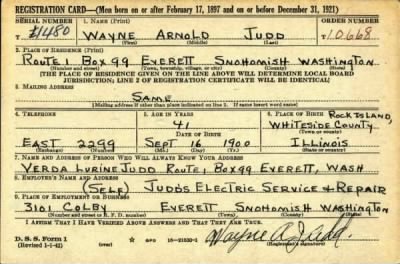 REGISTRATION CARD—(Men born on or after February 17, 1897 and on or before December 31, 1921)
SERIAL NUMBER 1. NAME (Print) ORDER NUMBER
1480 WAYNE ARNOLD JUDD 10668
(First) (Middle) (Last)
2. PLACE OF RESIDENCE (Print)
ROUTE 1 BOX 99 EVERETT SNOHOMISH WASHINGTON
(Number and street) (Town, township, village, or city) (County) (State)
[THE PLACE OF RESIDENCE GIVEN ON THE LINE ABOVE WILL DETERMINE LOCAL BOARD
JURISDICTION; LINE 2 OF REGISTRATION CERTIFICATE WILL BE IDENTICAL]
3. MAILING ADDRESS
SAME
[Mailing address if other than place indicated on line 2. If same insert word same]
4. TELEPHONE 5. AGE IN YEARS 6. PLACE OF BIRTH ROCK ISLAND,
41 WHITESIDE COUNTY
DATE OF BIRTH (Town or county)
EAST 2299 SEPT 16 1900 ILLINOIS
(Exchange) (Number) (Mo.) (Day) (Yr.) (State or country)
7. NAME AND ADDRESS OF PERSON WHO WILL ALWAYS KNOW YOUR ADDRESS
VERDA LURINE JUDD ROUTE 1 BOX 99 EVERETT, WASH
8. EMPLOYER'S NAME AND ADDRESS
(SELF) JUDD'S ELECTRIC SERVICE & REPAIR
9. PLACE OF EMPLOYMENT OR BUSINESS
3101 COLBY EVERETT SNOHOMISH WASHINGTON
(Number and street or R. F. D. number) (Town) (County) (State)
I AFFIRM THAT I HAVE VERIFIED ABOVE ANSWERS AND THAT THEY ARE TRUE.
D. S. S. Form 1
(Revised 1-1-42) (over) GPO 16—21630-2 Wayne A. Judd
(Registrant's signature)